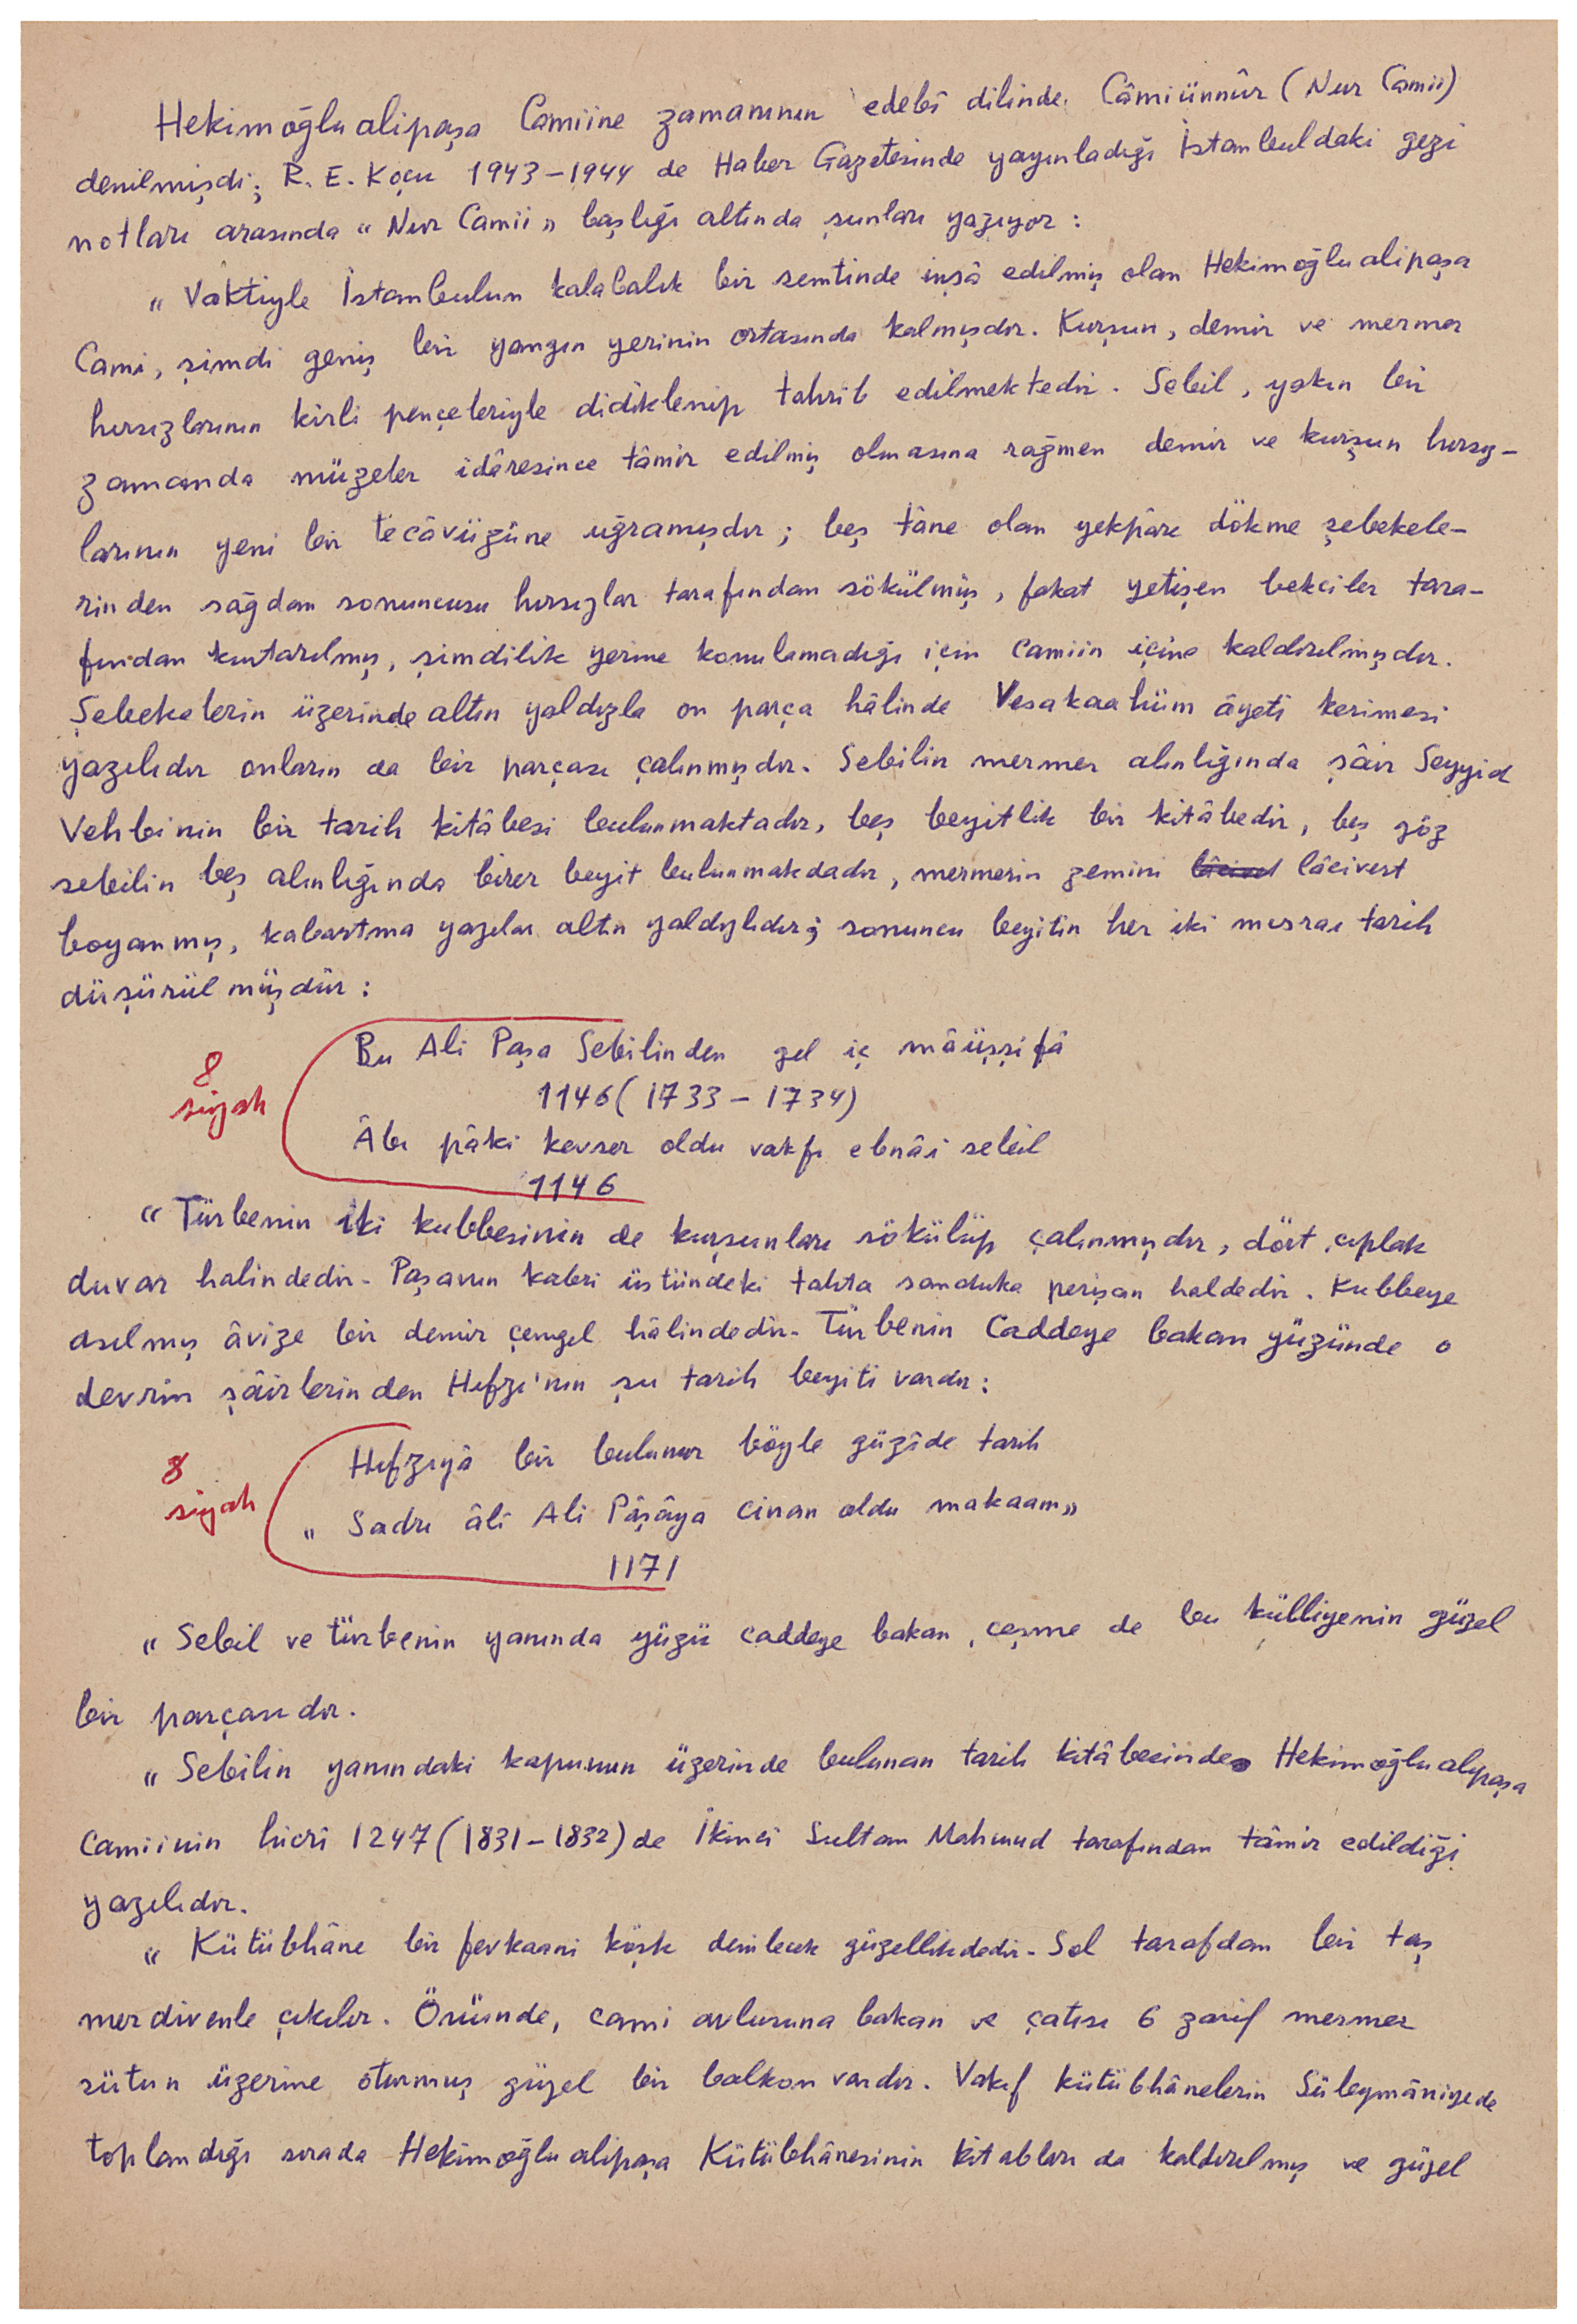 Hekimoğlualipaşa Camiine zamanının edebî dilinde Câmiünnûr (Nur Camii)
denilmişdi; R. E. Koçu 1943-1944 de Haber Gazetesinde yayınladığı İstanbuldaki gezi
notları arasında « Nur Camii » başlığı altında şunları yazıyor :
« Vaktiyle İstanbulun kalabalık bir semtinde inşâ edilmiş olan Hekimoğlualipaşa
Cami, şimdi geniş bir yangın yerinin ortasında kalmışdır. Kurşun, demir ve mermer
hırsızlarının kirli pençeleriyle didiklenip tahrib edilmektedir. Sebil, yakın bir
zamanda müzeler idâresince tâmir edilmiş olmasına rağmen demir ve kurşun hırsız-
larının yeni bir tecâvüzüne uğramışdır ; beş tâne olan yekpâre dökme şebekele-
rinden sağdan sonuncusu hırsızlar tarafından sökülmüş, fakat yetişen bekciler tara-
fından kurtarılmış, şimdilik yerine konulamadığı için camiin içine kaldırılmışdır.
Şebekelerin üzerinde altın yaldızla on parça hâlinde Vesakaahüm âyeti kerimesi
yazılıdır onların da bir parçası çalınmışdır. Sebilin mermer alınlığında şâir Seyyid
Vehbinin bir tarih kitâbesi bulunmaktadır, beş beyitlik bir kitâbedir, beş göz
sebilin beş alınlığında birer beyit bulunmakdadır, mermerin zemini lâcivert
boyanmış, kabartma yazılar altın yaldızlıdır ; sonuncu beyitin her iki mısraı tarih
düşürülmüşdür :
8
siyah
Bu Ali Paşa Sebilinden gel iç mâüşşifâ
1146 ( 1733 - 1734)
Âbı pâki kevser oldu vakfı ebnâi sebil
1146
« Türbenin iki kubbesinin de kurşunları sökülüp çalınmışdır, dört çıplak
duvar halindedir. Paşanın kabri üstündeki tahta sanduka perişan haldedir. Kubbeye
asılmış âvize bir demir çengel hâlindedir. Türbenin Caddeye bakan yüzünde o
devrin şâirlerinden Hıfzı'nın şu tarih beyiti vardır :
8
siyah
Hıfzıyâ bir bulunur böyle güzîde tarih
« Sadrı âlî Ali Pâşâya cinan oldu makaam»
1171
« Sebil ve türbenin yanında yüzü caddeye bakan çeşme de bu külliyenin güzel
bir parçasıdır.
« Sebilin yanındaki kapunun üzerinde bulunan tarih kitâbesinde Hekimoğlualipaşa
Camiinin hicrî 1247 ( 1831 - 1832) de İkinci Sultan Mahmud tarafından tâmir edildiği
yazılıdır.
« Kütübhâne bir fevkaani köşk denilecek güzellikdedir. Sol tarafdan bir taş
merdivenle çıkılır. Önünde, cami avlusuna bakan ve çatısı 6 zarif mermer
sütun üzerine oturmuş güzel bir balkon vardır. Vakıf kütübhânelerin Süleymâniyede
toplandığı sırada Hekimoğlualipaşa Kütübhânesinin kitabları da kaldırılmış ve güzel